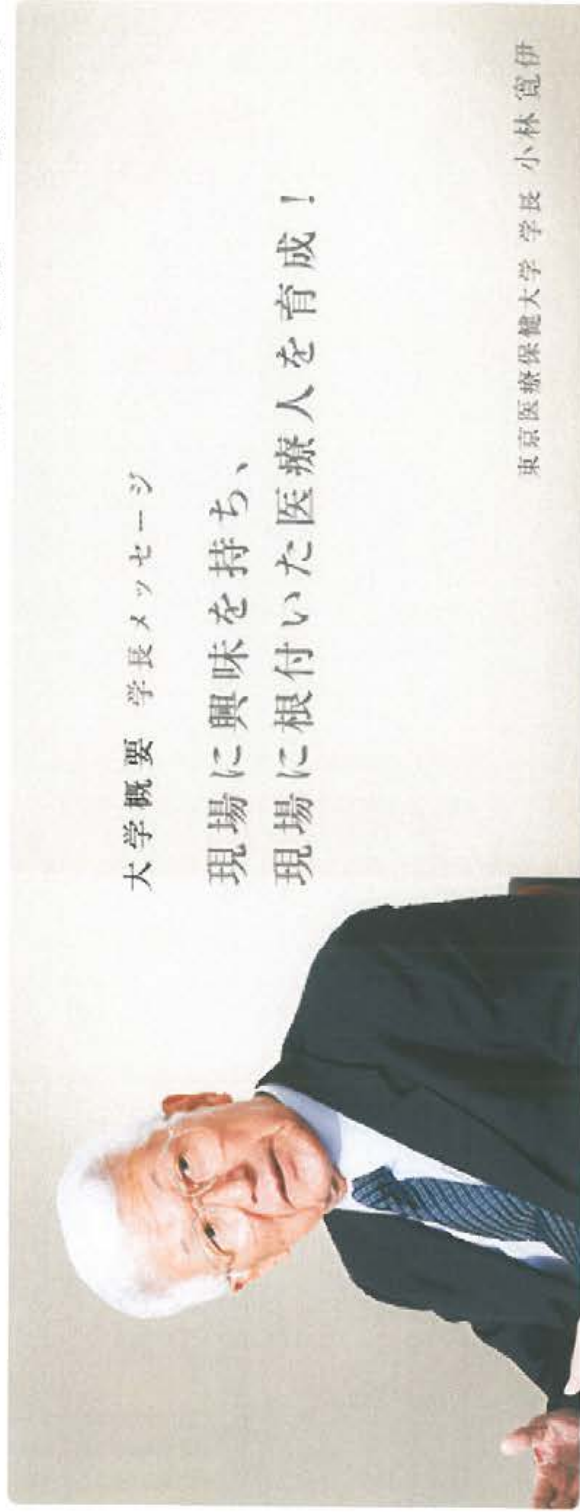 大学概要 学長メッセージ
現場に興味を持ち、
現場に根付いた医療人を育成！
東京医療保健大学 学長 小林 寛伊